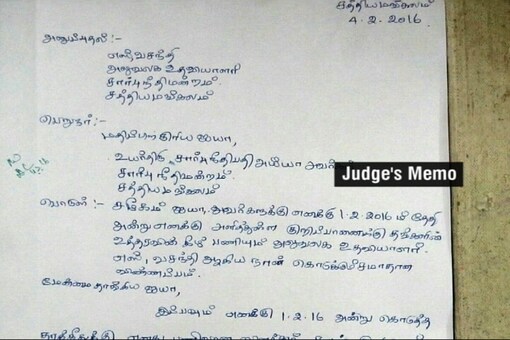 சத்தியமங்கலம்
4.2.2016
அனுப்புதல் :-
எஸ். வசந்தி
அலுவலக உதவியாளர்
சார்பு நீதிமன்றம்.
சத்தியமங்கலம்
பெறுநர் :-
மதிப்பிற்குரிய ஐயா,
உயர்திரு சார்பு நீதிபதி அய்யா அவர்கள்
சார்பு நீதிமன்றம்.
சத்தியமங்கலம்
Judge's Memo
பொருள் :- சமூகம் ஐயா அவர்களுக்கு எனக்கு 1.2.2016 ம் தேதி
அன்று எனக்கு அளித்துள்ள குறிப்பாணைக்கு தங்களின்
கீழ் பணிபுரியும் அலுவலக உதவியாளர்.
எஸ். வசந்தி ஆகிய நான் கொடுக்கும்
விண்ணப்பம்.
மேன்மை தாங்கிய ஐயா,
இப்பவும் எனக்கு 1.2.16 அன்று கொடுத்த
எனது